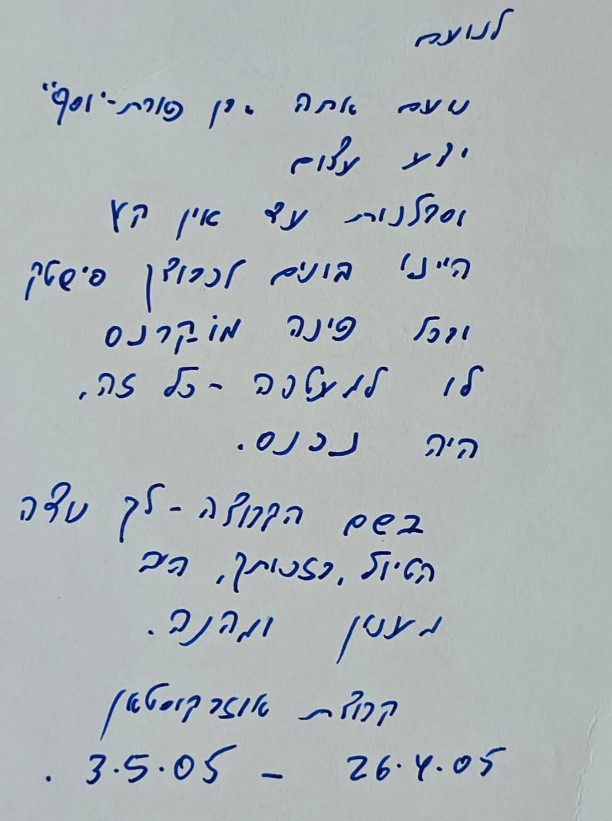 לנועם
נועם אתה בן פורת-"יוסף"
ידע עצום
וסבלנות עד אין קץ
היינו בונים לכבודך פישטק
ובכל פינה מוֹקרנס
לו למעלה - כל זה,
היה נכנס.
בשם הקבוצה - לך תודה
הטיול, בזכותך, היה
מענין ומהנה.
קבוצת אוזבקיסטאן
26.4.05 - 3.5.05.